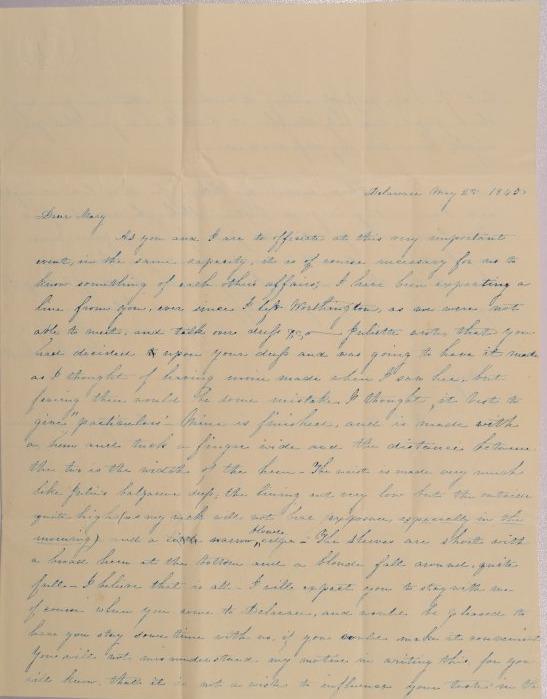 Delaware May 23d 1845
Dear Mary
As you and I are to officiate at this very important
event, in the same capacity, it is of course necessary for us to
know something of each others affairs, I have been expecting a
line from you, ever since I left Worthington, as we were not
able to meet, and talk over dress &c, Juliette wrote that you
had decided upon your dress and was going to have it made
as I thought of having mine made when I saw her, but
fearing there would be some mistake I thought it best to
give "particulars" Mine is finished, and is made with
a hem and tuck a finger wide and the distance between
the two is the width of the hem - The waist is made very much
like Julia's balzarine dress, the lining cut very low but the outside
quite high (as my neck will not bear exposure, especially in the
morning) and a narrow blonde edge - The sleeves are short with
a broad hem at the bottom and a blonde fall around, quite
full - I believe that is all - I will expect you to stay with me
of course when you come to Delaware, and would be pleased to
have you stay some time with us, if you could make it convenient
You will not misunderstand my motive in writing this, for you
will know that it is not a wish to influence your taste in the